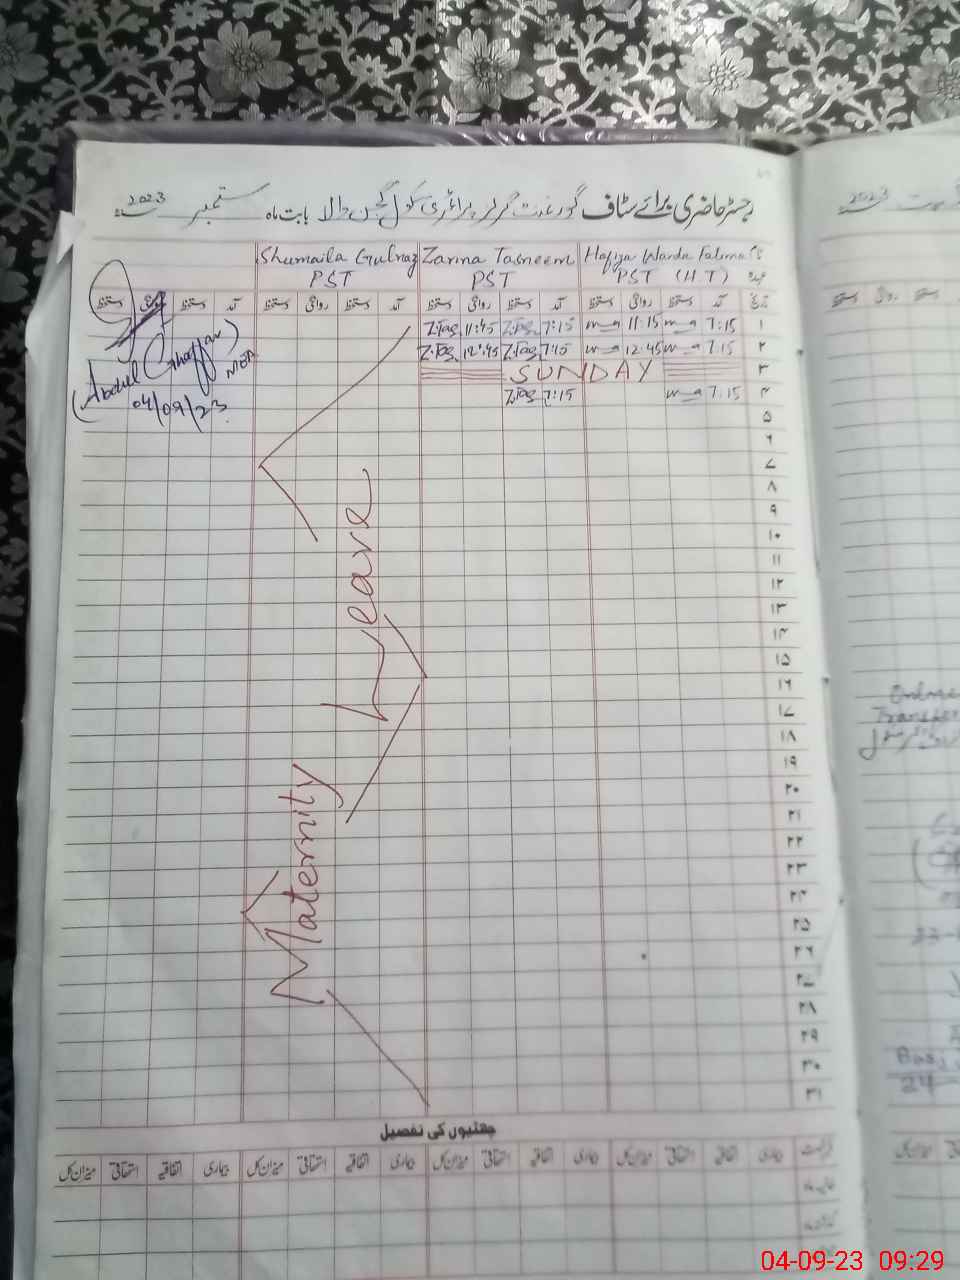 رجسٹر حاضری برائے سٹاف گورنمنٹ گرلز پرائمری سکول گجن والا بابت ماہ ستمبر 2023
Hafiza Warda Fatima Zarina Tasneem Shumaila Gulnaz
PST (H.T) PST PST
تاریخ آمد دستخط روانگی دستخط آمد دستخط روانگی دستخط آمد دستخط روانگی دستخط آمد دستخط روانگی دستخط
۱ 7:15 11:15 7:15 Z.Tas 11:45 Z.Tas
۲ 7:15 12:45 7:15 Z.Tas 12:45 Z.Tas
۳ SUNDAY
۴ 7:15 7:15 Z.Tas
(Abdul Ghaffar)
MEA
04/09/23
۵
۶
۷
۸
۹
۱۰
۱۱
۱۲
۱۳
۱۴
۱۵
۱۶
۱۷
۱۸
۱۹
۲۰
۲۱
۲۲
۲۳
۲۴
۲۵
۲۶
۲۷
۲۸
۲۹
۳۰
۳۱
Maternity Leave
چھٹیوں کی تفصیل
رخصت بیماری اتفاقیہ استحقاقی میزان کل بیماری اتفاقیہ استحقاقی میزان کل بیماری اتفاقیہ استحقاقی میزان کل
2023
Online
Transfer
24
04-09-23 09:29